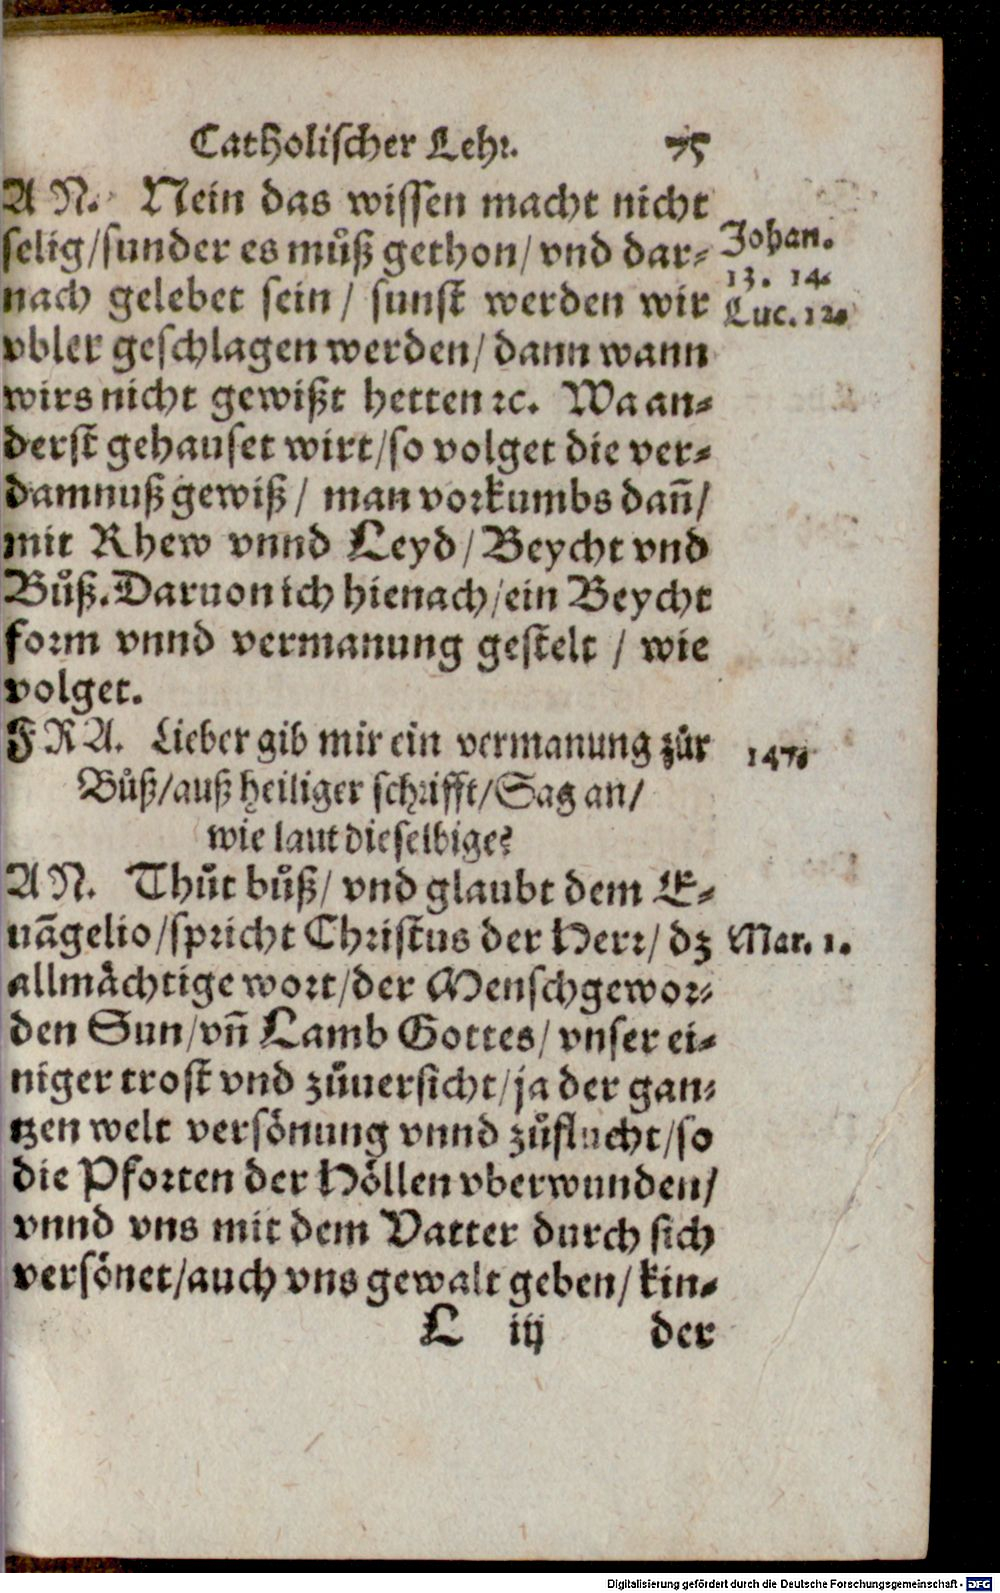 Catholischer Lehr. 75
AN. Nein das wissen macht nicht
selig/sunder es můß gethon/vnd dar-
Johan.
13. 14.
nach gelebet sein/ sunst werden wir
Luc. 12.
vbler geschlagen werden/dann wann
wirs nicht gewißt hetten ꝛc. Wa an-
derst gehauset wirt/so volget die ver-
damnuß gewiß/ man vorkumbs dañ/
mit Rhew vnnd Leyd/Beycht vnd
Bůß. Daruon ich hienach/ein Beycht
form vnnd vermanung gestelt / wie
volget.
FRA. Lieber gib mir ein vermanung zůr
147.
Bůß/auß heiliger schrifft/Sag an/
wie laut dieselbige?
AN. Thůt bůß/ vnd glaubt dem E-
uãgelio/spricht Christus der Herr/dz
Mar. 1.
allmåchtige wort/der Menschgewor-
den Sun/vñ Lamb Gottes/vnser ei-
niger trost vnd zůuersicht/ja der gan-
tzen welt versönung vnnd zůflucht/so
die Pforten der Höllen vberwunden/
vnnd vns mit dem Vatter durch sich
versönet/auch vns gewalt geben/kin-
L iij der
Digitalisierung gefördert durch die Deutsche Forschungsgemeinschaft - DFG